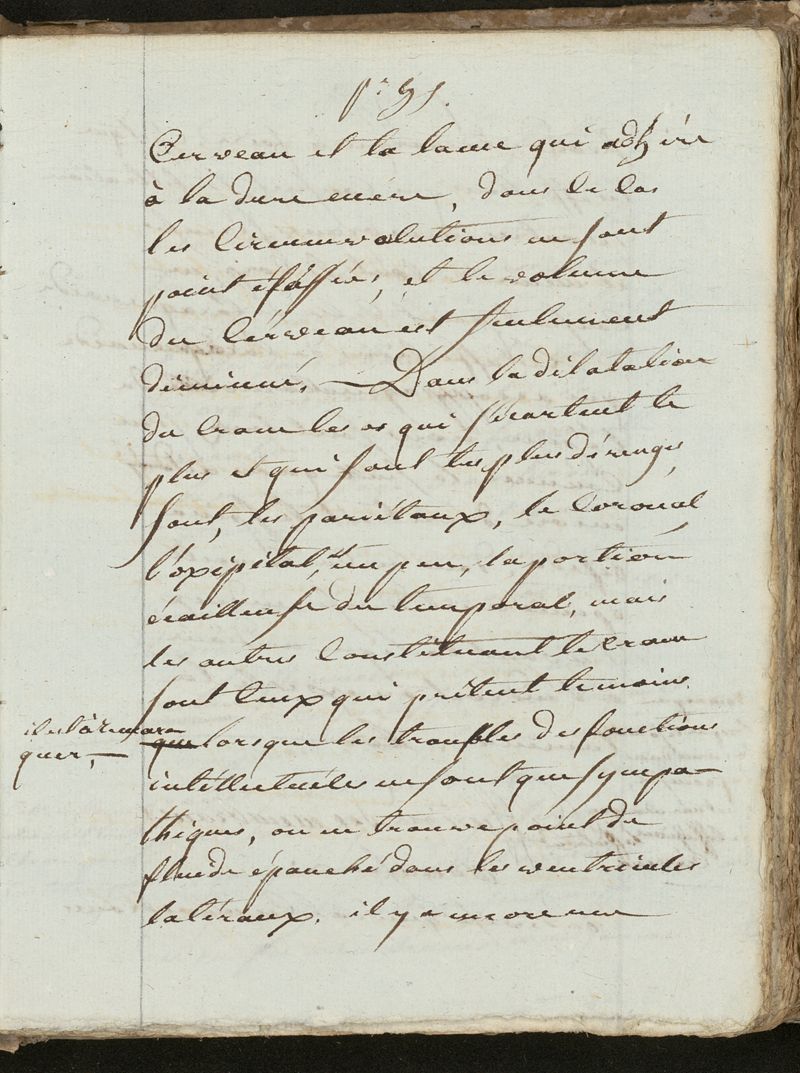 Cerveau et la lame qui adhére
à la dure mére, dans le cas
les Circonvolutions ne sont
point éfassées, et le volume
du Cérveau est seulement
diminué, — Dans la dilatation
du Crane les os qui s'écartent le
plus et qui sont les plus dérangés,
sont, les pariétaux, le Coronal
l'oxipital, un peu, la portion
écailleuse du temporal, mais
les autres Constituant le Crane
sont Ceux qui prêtent le moins.
il est à remar
quer, — que lorsque les troubles des fonctions
intéllectuéles ne sont que sympa-
thiques, on ne trouve point de
fluide épanché dans les ventricules
latéraux. il y a encore une